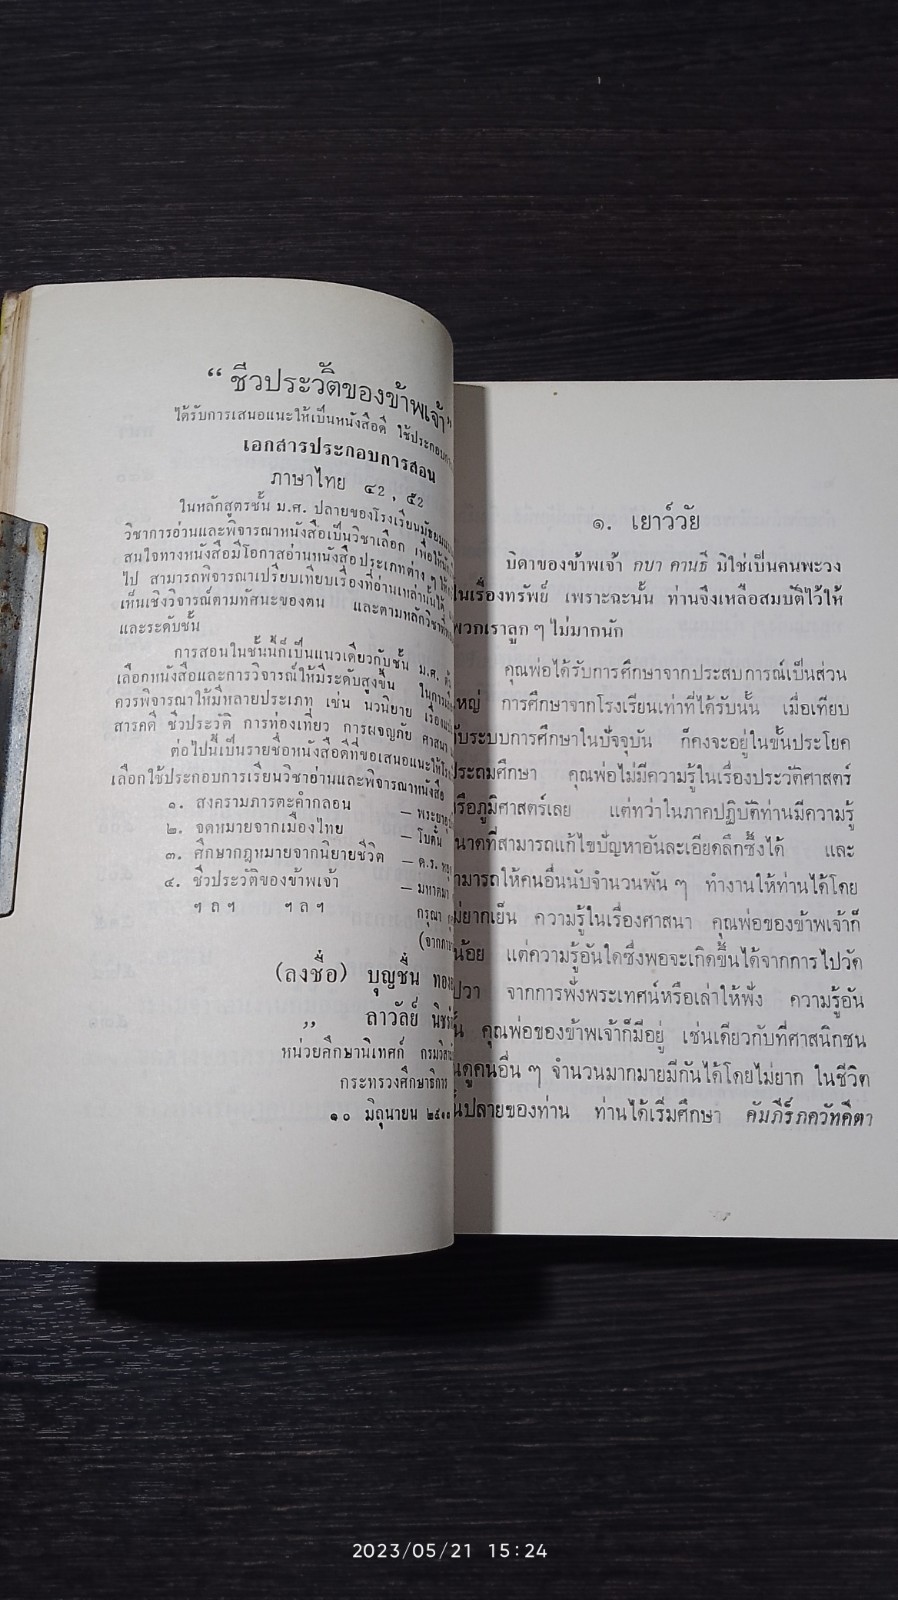 “ ชีวประวัติของข้าพเจ้า”
ได้รับการเสนอแนะให้เป็นหนังสือดี ใช้ประกอบการ
เอกสารประกอบการสอน
ภาษาไทย ๔2 , ๕2
ในหลักสูตรชั้น ม.ศ. ปลายของโรงเรียนมัธยม
วิชาการอ่านและพิจารณาหนังสือเป็นวิชาเลือก เพื่อให้
สนใจทางหนังสือมีโอกาสอ่านหนังสือประเภทต่าง ๆ
ไป สามารถพิจารณาเปรียบเทียบเรื่องที่อ่านเหล่านั้นได้
เห็นเชิงวิจารณ์ตามทัศนะของตน และตามหลักวิชา
และระดับชั้น
การสอนในชั้นนี้ก็เป็นแนวเดียวกับชั้น ม.ศ.
เลือกหนังสือและการวิจารณ์ให้มีระดับสูงขึ้น ในการ
ควรพิจารณาให้มีหลายประเภท เช่น นวนิยาย
สารคดี ชีวประวัติ การท่องเที่ยว การผจญภัย ศาสนา
ต่อไปนี้เป็นรายชื่อหนังสือดีที่ขอเสนอแนะให้
เลือกใช้ประกอบการเรียนวิชาอ่านและพิจารณาหนังสือ
๑. สงครามภารตะคำกลอน
๒. จดหมายจากเมืองไทย — โบตั๋น
๓. ศึกษากฎหมายจากนิยายชีวิต — ด.ร.
๔. ชีวประวัติของข้าพเจ้า — มหาตมา
ฯ ล ฯ ฯ ล ฯ กรุณา
(ลงชื่อ) บุญชื่น
,, ลาวัลย์
หน่วยศึกษานิเทศก์
กระทรวงศึกษาธิการ
๑๐ มิถุนายน
๑. เยาว์วัย
บิดาของข้าพเจ้า กบา คานธี มิใช่เป็นคนพะวง
ในเรื่องทรัพย์ เพราะฉะนั้น ท่านจึงเหลือสมบัติไว้ให้
พวกเราลูก ๆ ไม่มากนัก
คุณพ่อได้รับการศึกษาจากประสบการณ์เป็นส่วน
หญ่ การศึกษาจากโรงเรียนเท่าที่ได้รับนั้น เมื่อเทียบ
กับระบบการศึกษาในปัจจุบัน ก็คงจะอยู่ในขั้นประโยค
ประถมศึกษา คุณพ่อไม่มีความรู้ในเรื่องประวัติศาสตร์
รือภูมิศาสตร์เลย แต่ทว่าในภาคปฏิบัติท่านมีความรู้
นาดที่สามารถแก้ไขปัญหาอันละเอียดลึกซึ้งได้ และ
ามารถให้คนอื่นนับจำนวนพัน ๆ ทำงานให้ท่านได้โดย
ม่ยากเย็น ความรู้ในเรื่องศาสนา คุณพ่อของข้าพเจ้าก็
น้อย แต่ความรู้อันใดซึ่งพอจะเกิดขึ้นได้จากการไปวัด
ปวา จากการฟังพระเทศน์หรือเล่าให้ฟัง ความรู้อัน
ั้น คุณพ่อของข้าพเจ้าก็มีอยู่ เช่นเดียวกับที่ศาสนิกชน
นดูคนอื่น ๆ จำนวนมากมายมีกันได้โดยไม่ยาก ในชีวิต
ั้นปลายของท่าน ท่านได้เริ่มศึกษา คัมภีร์ภควัทคีตา
2023/05/21 15:24